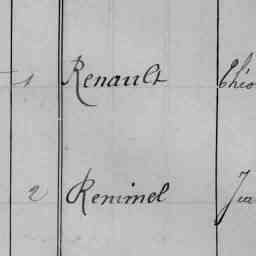 1 Renault Théo
2 Remmel Jea